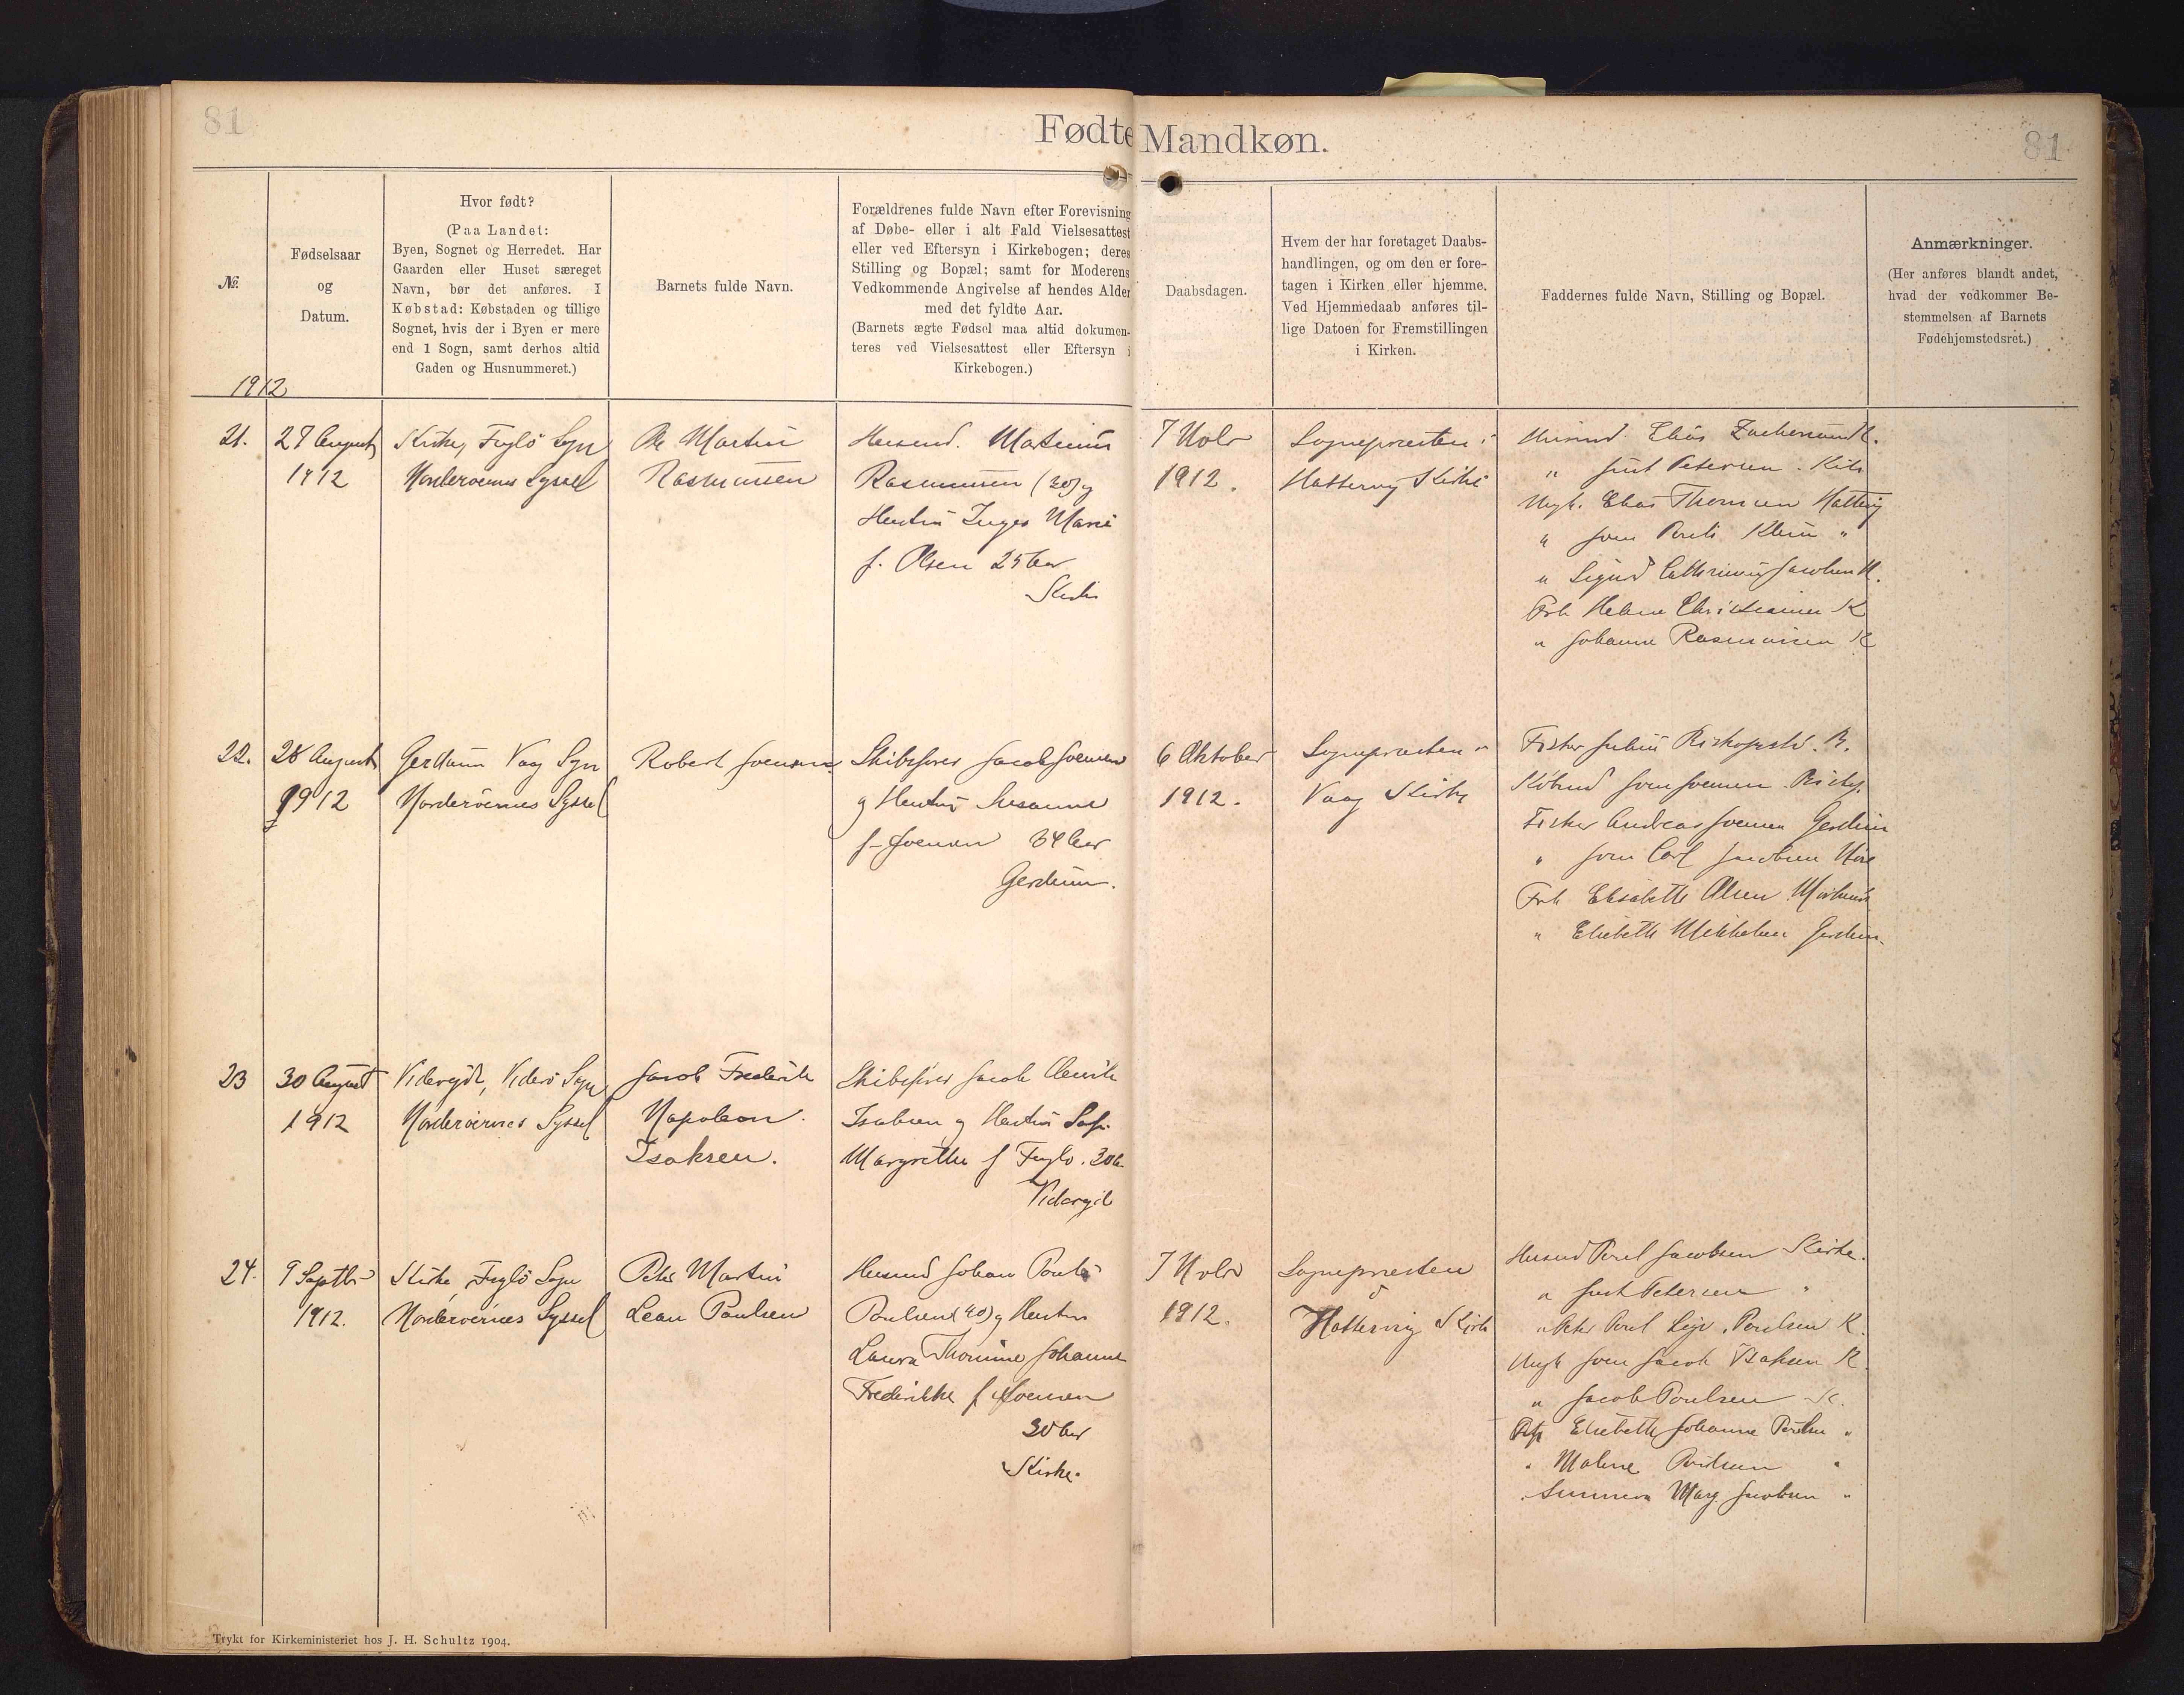 81
Fødte Mandkøn.
81
№
Fødselsaar
og
Datum.
Hvor født?
(Paa Landet:
Byen, Sognet og Herredet. Har
Gaarden eller Huset særeget
Navn, bør det anføres. I
Købstad: Købstaden og tillige
Sognet, hvis der i Byen er mere
end 1 Sogn, samt derhos altid
Gaden og Husnummeret.)
Barnets fulde Navn.
Forældrenes fulde Navn efter Forevisning
af Døbe- eller i alt Fald Vielsesattest
eller ved Eftersyn i Kirkebogen; deres
Stilling og Bopæl; samt for Moderens
Vedkommende Angivelse af hendes Alder
med det fyldte Aar.
(Barnets ægte Fødsel maa altid dokumen-
teres ved Vielsesattest eller Eftersyn i
Kirkebogen.)
Daabsdagen.
Hvem der har foretaget Daabs-
handlingen, og om den er fore-
tagen i Kirken eller hjemme.
Ved Hjemmedaab anføres til-
lige Datoen for Fremstillingen
i Kirken.
Faddernes fulde Navn, Stilling og Bopæl.
Anmærkninger.
(Her anføres blandt andet,
hvad der vedkommer Be-
stemmelsen af Barnets
Fødehjemstedsret.)
1912
21.
27 August
1912
Kirke, Fuglö Sogn
Norderøernes Syssel
Ole Martin
Rasmussen
Husmd. Martinus
Rasmussen (30) og
Hustru Inger Marie
f. Olsen 25 Aar
Kirke
7 Novbr
1912.
Sognepræsten i
Hattervig Kirke
Husmd. Elias Zachariasen K.
" Just Petersen. Kirke
Ungk. Elias Thomsen Hattervig
" Joen Poul Klein "
" Sigurd Cathrinius Jacobsen K.
Frk Helene Christiansen K
" Johanne Rasmussen K
22.
28 August
1912
Gerdum Vaag Sogn
Norderøernes Syssel
Robert Joensen
Skibsfører Jacob Joensen
og Hustru Susanne
f. Joensen 34 Aar
Gerdum.
6 Oktober
1912.
Sognepræsten i
Vaag Kirke
Fisker Julius Biskopstø. B.
Købmd Joen Joensen
Fisker Andreas Joensen Gerdum
" Joen Carl Jacobsen
Frk Elisabeth Olsen
" Elsebeth Mikkelsen Gerdum.
23
30 August
1912
Viderejde, Viderø Sogn
Norderøernes Syssel
Jacob Frederik
Napoleon
Isaksen.
Skibsfører Jacob Henrik
Isaksen og Hustru Sofie
Margrethe f Fuglø. 30 A.
Viderejde
24.
9 Septbr
1912.
Kirke, Fuglö Sogn
Norderøernes Syssel
Peter Martin
Lean Poulsen
Husmd Johan Poul
Poulsen (40) og Hustru
Laura Thomine Johanne
Frederikke f Joensen
30 Aar
Kirke.
7 Novbr
1912.
Sognepræsten
i
Hattervig Kirke
Husmd Poul Jacobsen Kirke.
" Just Petersen "
" Peter Poul Poulsen K.
Ungk Joen Jacob Isaksen K.
" Jacob Poulsen K.
Elsebeth Johanne Poulsen "
" Malene Poulsen "
" Sunneva Marg. Jacobsen "
Trykt for Kirkeministeriet hos J. H. Schultz 1904.